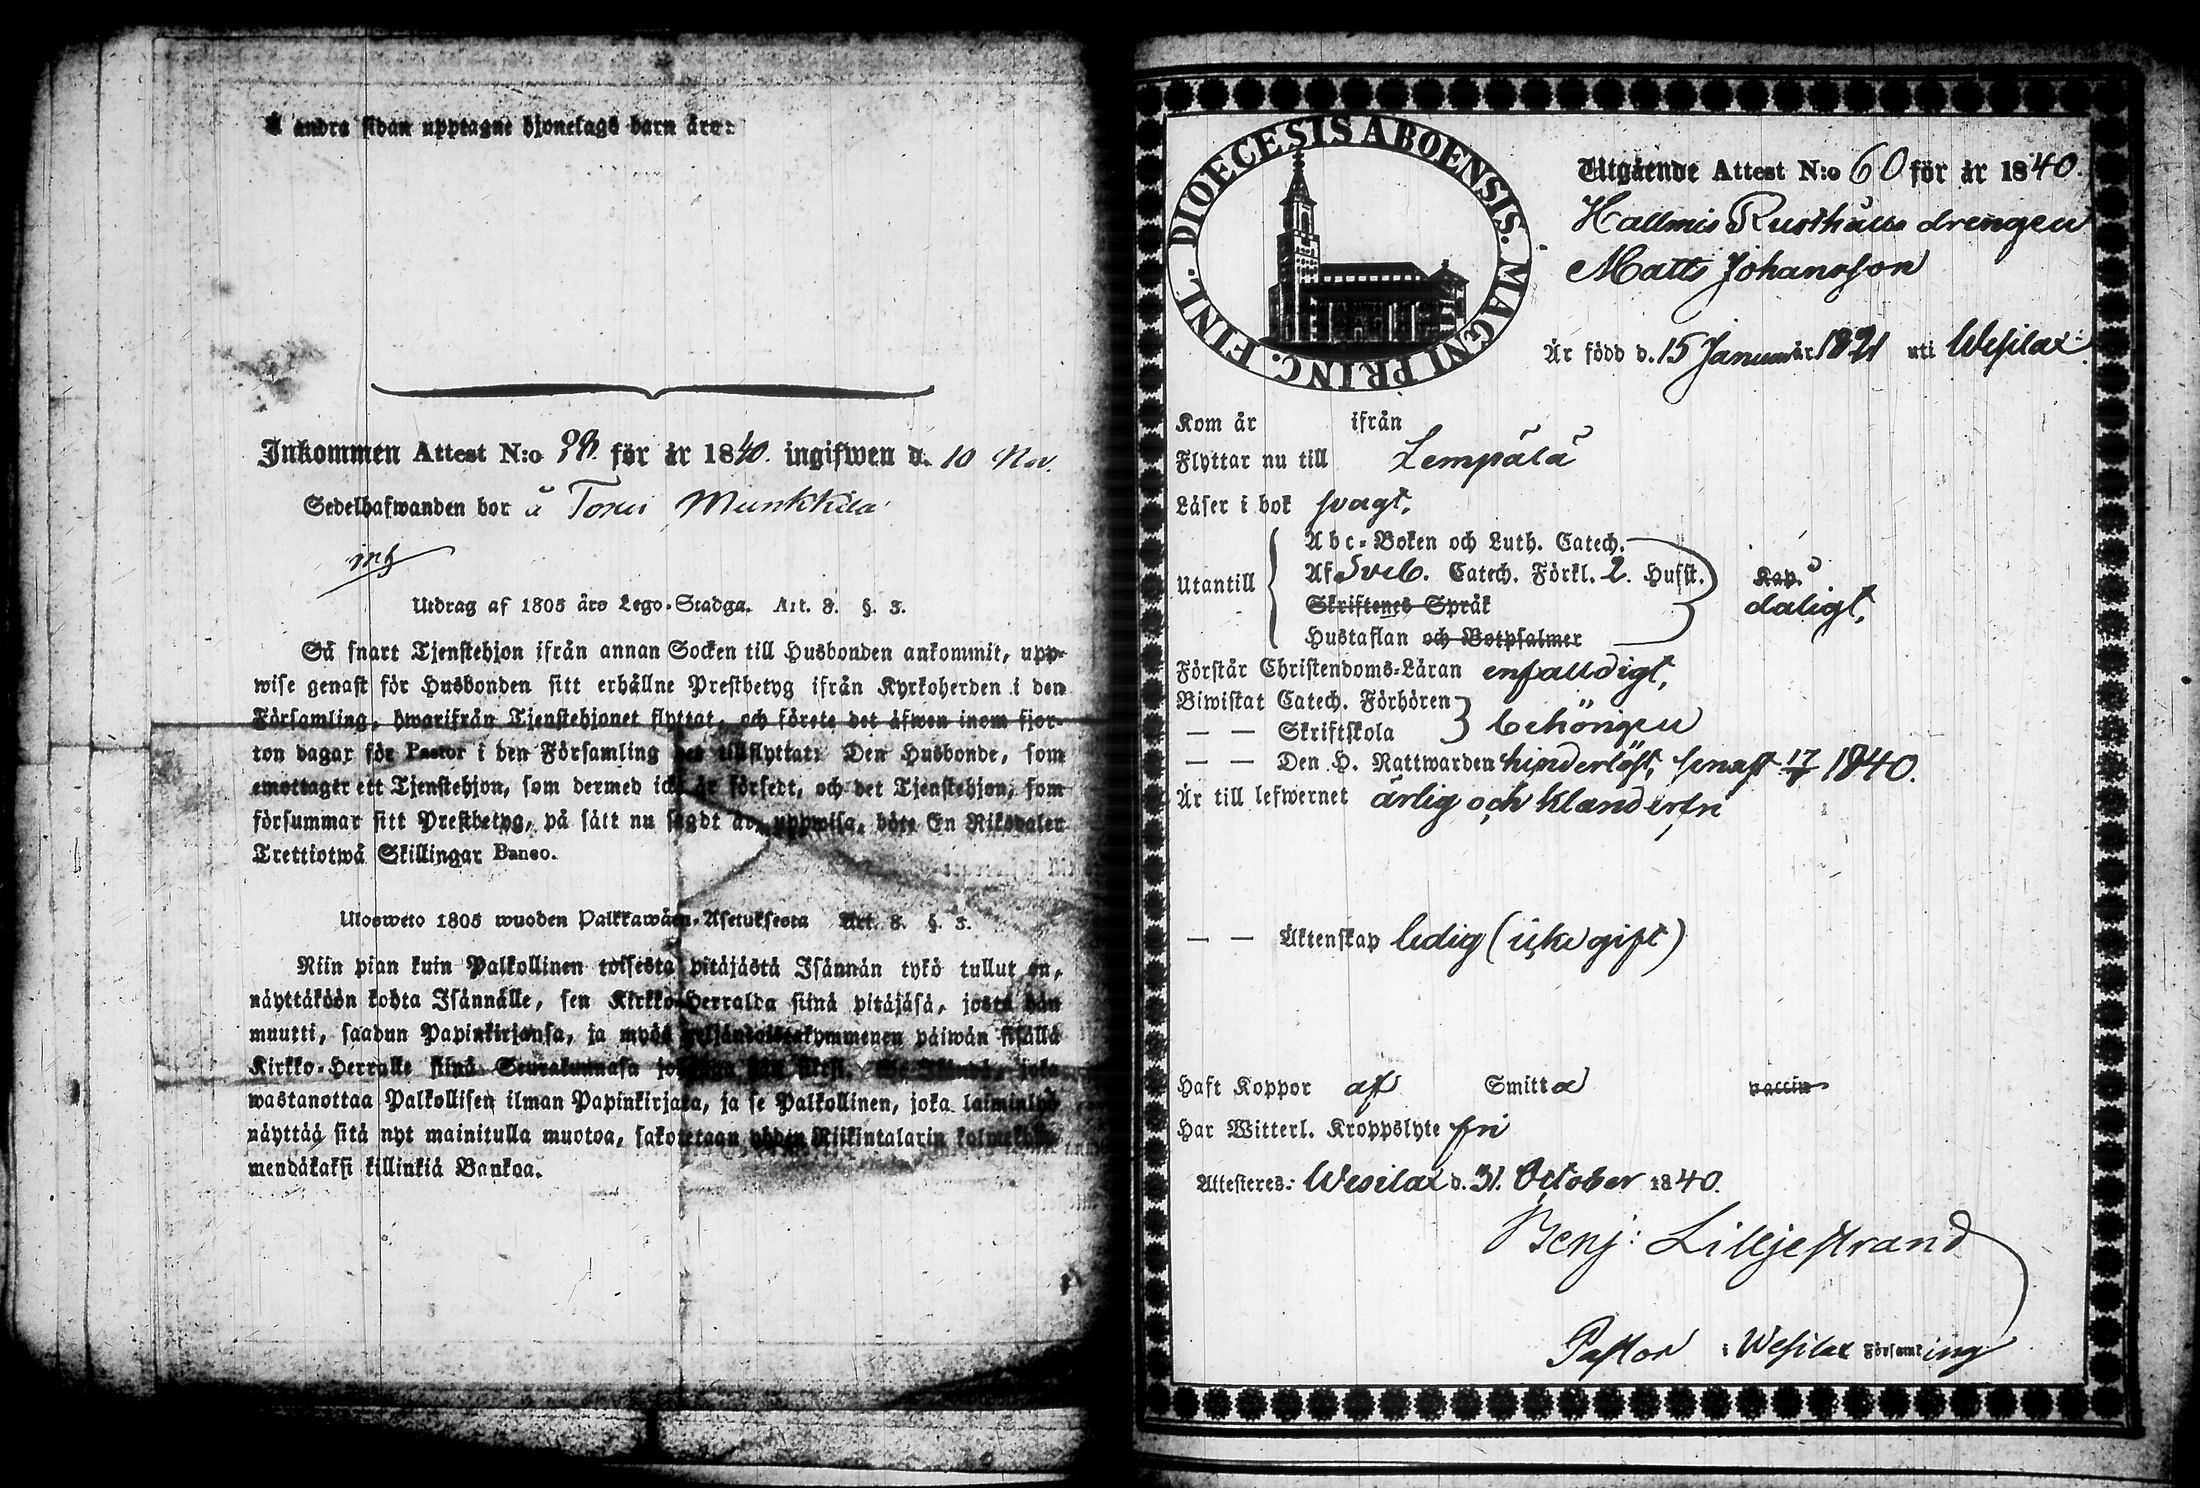 å andra sidan upptagne hjonelags barn äro:
Inkommen Attest N:o för år 1840. ingifwen d. 10 Nov.
Sedelhafwanden bor å Munkkila
Utdrag af 1805 års Lego-Stadga. Art. 8. §. 3.
Så snart Tjenstehjon ifrån annan Socken till Husbonden ankommit, upp-
wise genast för Husbonden sitt erhållne Prestbetyg ifrån Kyrkoherden i den
Församling, hwarifrån Tjenstehjonet flyttat, och förete det äfwen inom fjor-
ton dagar för Pastor i den Församling det tillflyttat: Den Husbonde, som
emottager ett Tjenstehjon, som dermed icke är försedt, och det Tjenstehjon, som
försummar sitt Prestbetyg, på sätt nu sagdt är, uppwisa, böte En Riksdaler
Trettiotwå Skillingar Banco.
Ulosweto 1805 wuoden Palkkawäen-Asetuksesta Art. 8. §. 3.
Niin pian kuin Palkollinen toisesta pitäjästä Isännän tykö tullut on,
näyttäköön kohta Isännälle, sen Kirkko-Herralda siinä pitäjäsä, josta hän
muutti, saadun Papinkirjansa, ja myös neljäntoistakymmenen päiwän sisällä
Kirkko-Herralle siinä Seurakunnasa johonga hän siirsi. Se Isändä, joka
wastanottaa Palkollisen ilman Papinkirjata, ja se Palkollinen, joka laiminlyö
näyttää sitä nyt mainitulla muotoa, sakotetaan yhden Riikintalarin kolmekym-
mendäkaksi killinkiä Bankoa.
DIOECESIS ABOENSIS. MAGNI PRINC. FINL.
Utgående Attest N:o 60 för år 1840.
Hallmis Rusthålls drengen
Matts Johansson
Är född d. 15 Januarii 1821 uti Wesilax
Kom år ifrån
Flyttar nu till Lempälä
Läser i bok svagt,
Utantill
Abc-Boken och Luth. Catech.
Af Sveb. Catech. Förkl. 2. Hufst. Kap.
Skriftenes Språk dåligt,
Hustaflan och Botpsalmer
Förstår Christendoms-Läran enfalldigt,
Biwistat Catech. Förhören
— — Skriftskola behörigen
— — Den H. Nattwarden hinderlöst, senast 1840.
Är till lefwernet ärlig och klanderfri
— — Äktenskap ledig (icke gift)
Haft Koppor af Smitta vaccin
Har Witterl. Kroppslyte fri
Attesteres: Wesilax d. 31. October 1840.
Benj: Liljestrand
Pastor i Wesilax Församling